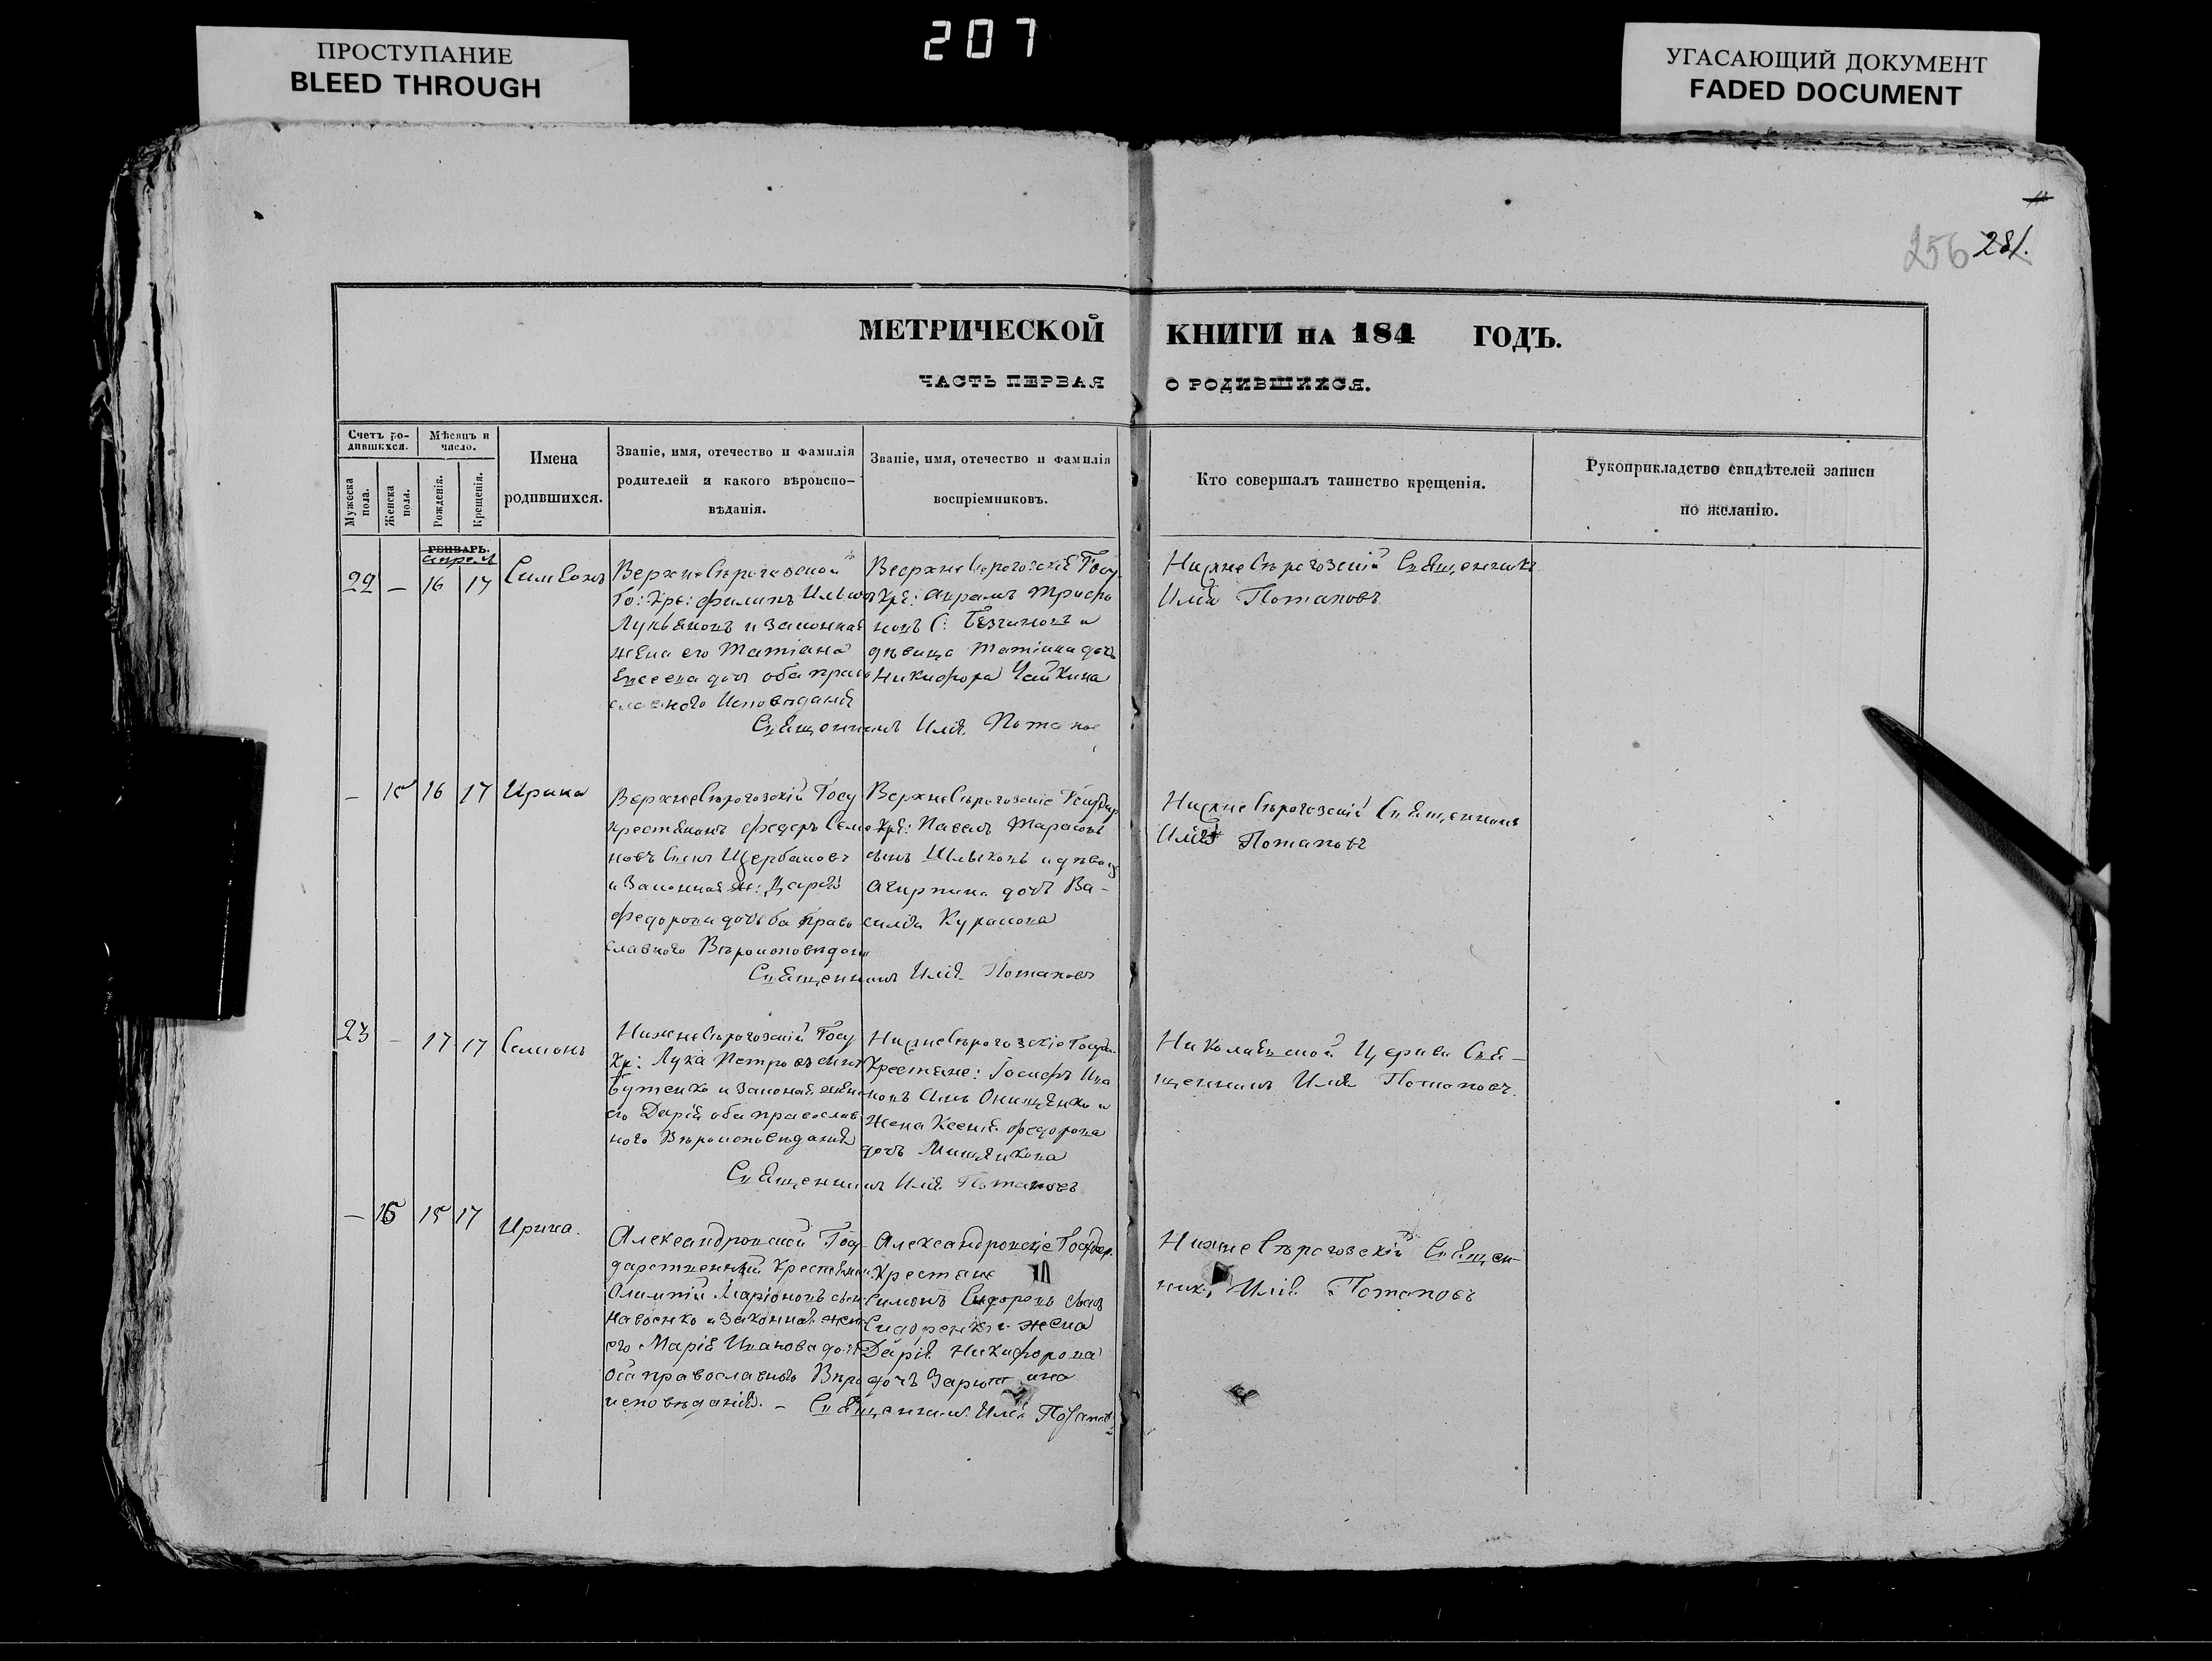 207
ПРОСТУПАНИЕ
BLEED THROUGH
УГАСАЮЩИЙ ДОКУМЕНТ
FADED DOCUMENT
256 281.
МЕТРИЧЕСКОЙ КНИГИ НА 184 ГОДЪ.
ЧАСТЬ ПЕРВАЯ О РОДИВШИХСЯ.
Счетъ ро-
дившихся.
Мужеска
пола.
Женска
пола.
Мѣсяцъ и
число.
Рожденія.
Крещенія.
Имена
родившихся.
Званіе, имя, отечество и фамилія
родителей и какого вѣроиспо-
вѣданія.
Званіе, имя, отечество и фамилія
воспріемниковъ.
Кто совершалъ таинство крещенія.
Рукоприкладство свидѣтелей записи
по желанію.
ГЕНВАРЬ.
апрель
22 — 16 17
Симеонъ
Верхнесѣрогозской
Го: Кре: Филипъ
Лукьяновъ и законная
жена его Татіана
дочь оба право
славного Исповѣданія
Верхнесѣрогозскіе Госу
Кре:
и
дѣвица Татіана дочь
Никифора Чайкина
Священникъ Илія Потапов
Нижнесѣрогозскій Священникъ
Илія Потаповъ
— 15 16 17
Ирина
Верхнесѣрогозскій Госу
крестьянинъ Федоръ Семе
новъ Сынъ Щербаковъ
и Законная ж: Дарія
Федорова дочь оба право
славного Вѣроисповѣдан
Верхнесѣрогозскіе Государ
Кре: Павелъ Тарасовъ
сынъ и дѣвица
Агирпина дочь Ва-
силія
Священникъ Илія Потаповъ
Нижнесѣрогозскій Священникъ
Илія Потаповъ
23 — 17 17
Семіонъ
Нижнесѣрогозскій Госу
Кр: Лука Петровъ сынъ
Бутенко и Законая жена
его Дарія оба православ
ного Вѣроисповѣданія
Нижнесѣрогозскіе Госуда
Крестьяне: Іосифъ Ива
новъ Сынъ Онищенко и
Жена Ксенія Федорова
дочь
Священникъ Илія Потаповъ
Николаевской Церкви Свя-
щенникъ Илія Потаповъ.
— 16 15 17
Ирина.
Александровской Госу
дарственный Крестьянин
Иларіоновъ сын
и законная жен
его Марія Иванова дочь
оба православного Вѣро
исповѣданія. –
Александровскіе Государ.
Крестьяне
Симонъ Сидоровъ сынъ
Сидоренко и жена
Дарія Никифорова
дочъ
Священникъ Илія Потапов
Нижнесѣрогозскій Священ-
никъ Илія Потаповъ